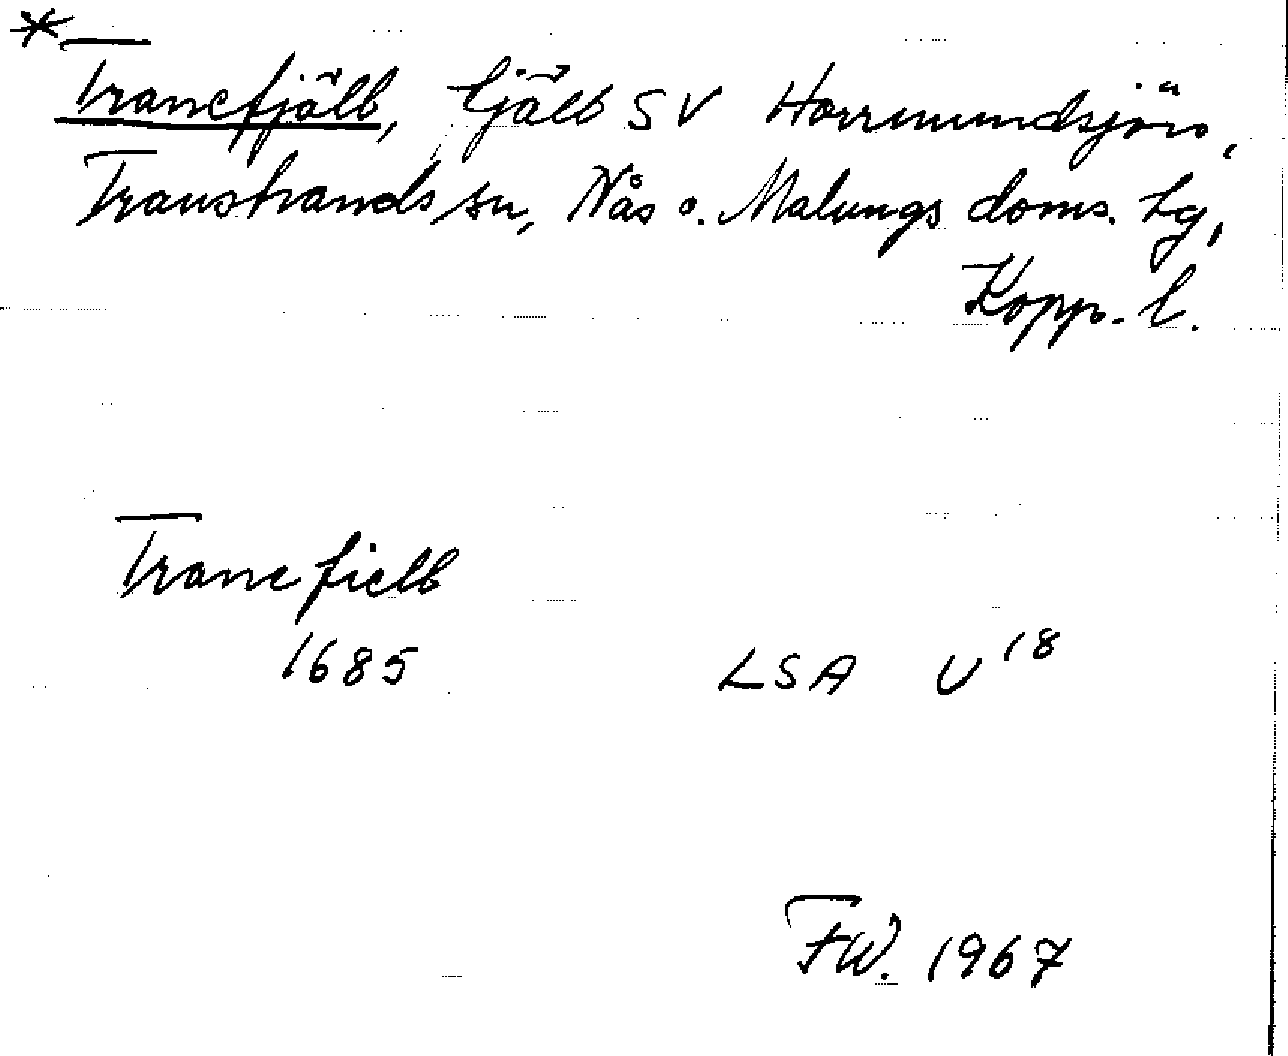 * Tranefjäll, fjäll SV Horrmundsjön,
Transtrands sn, Nås o. Malungs doms. lg,
Kopp. l.
Tranefiell
1685 LSA U 18
FW. 1967